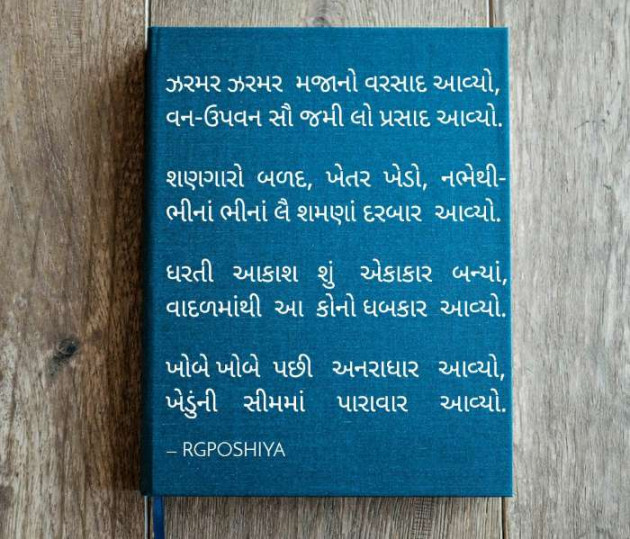 ઝરમર ઝરમર મજાનો વરસાદ આવ્યો,
વન-ઉપવન સૌ જમી લો પ્રસાદ આવ્યો.
શણગારો બળદ, ખેતર ખેડો, નભેથી-
ભીનાં ભીનાં લૈ શમણાં દરબાર આવ્યો.
ધરતી આકાશ શું એકાકાર બન્યાં,
વાદળમાંથી આ કોનો ધબકાર આવ્યો.
ખોબે ખોબે પછી અનરાધાર આવ્યો,
ખેડુંની સીમમાં પારાવાર આવ્યો.
– RGPOSHIYA